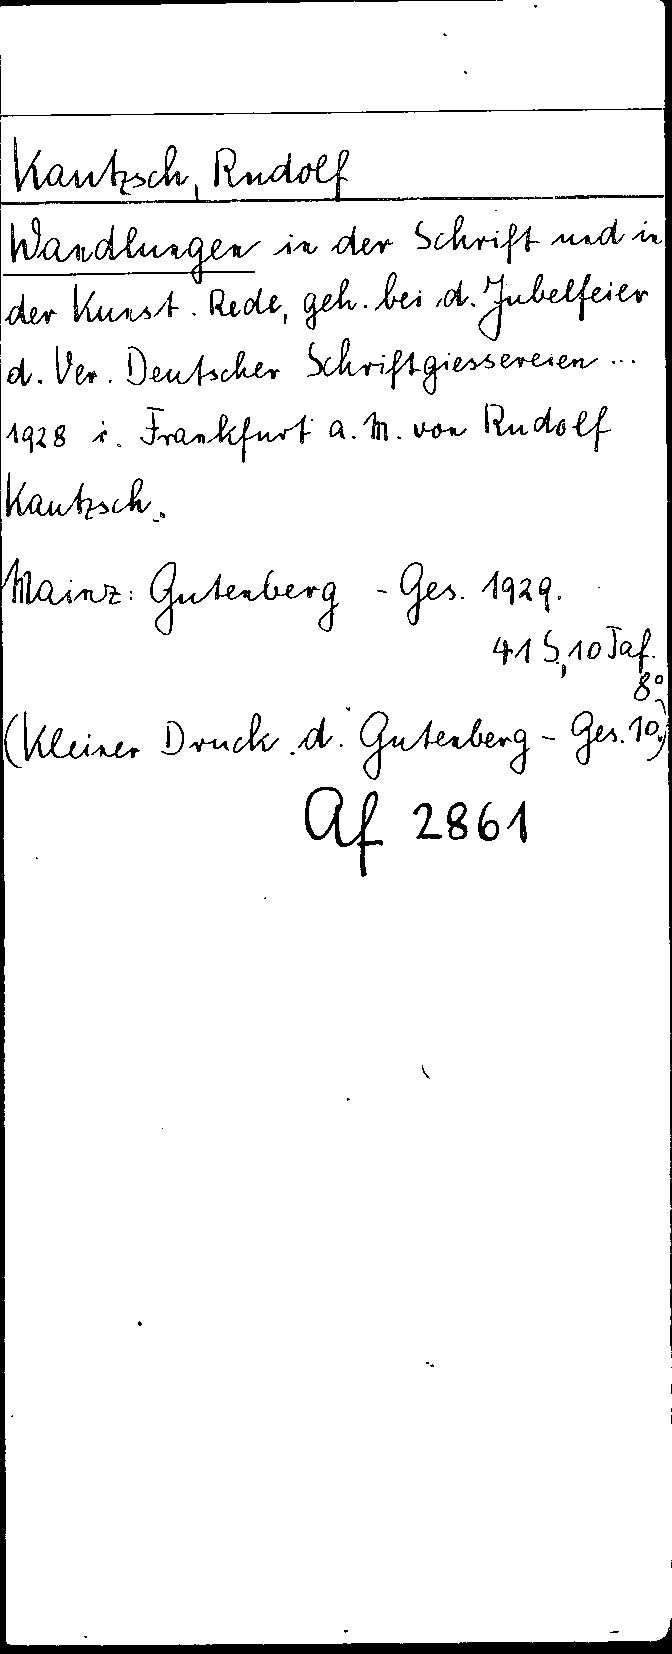 Kautzsch, Rudolf
Wandlungen in der Schrift und in
der Kunst. Rede, geh. bei d. Jubelfeier
d. Ver. Deutscher Schriftgiessereien ...
1928 i. Frankfurt a. M. von Rudolf
Kautzsch.
Mainz: Gutenberg - Ges. 1929.
41 S, 10 Taf.
8°
(Kleiner Druck d. Gutenberg - Ges. 10.)
Af 2861